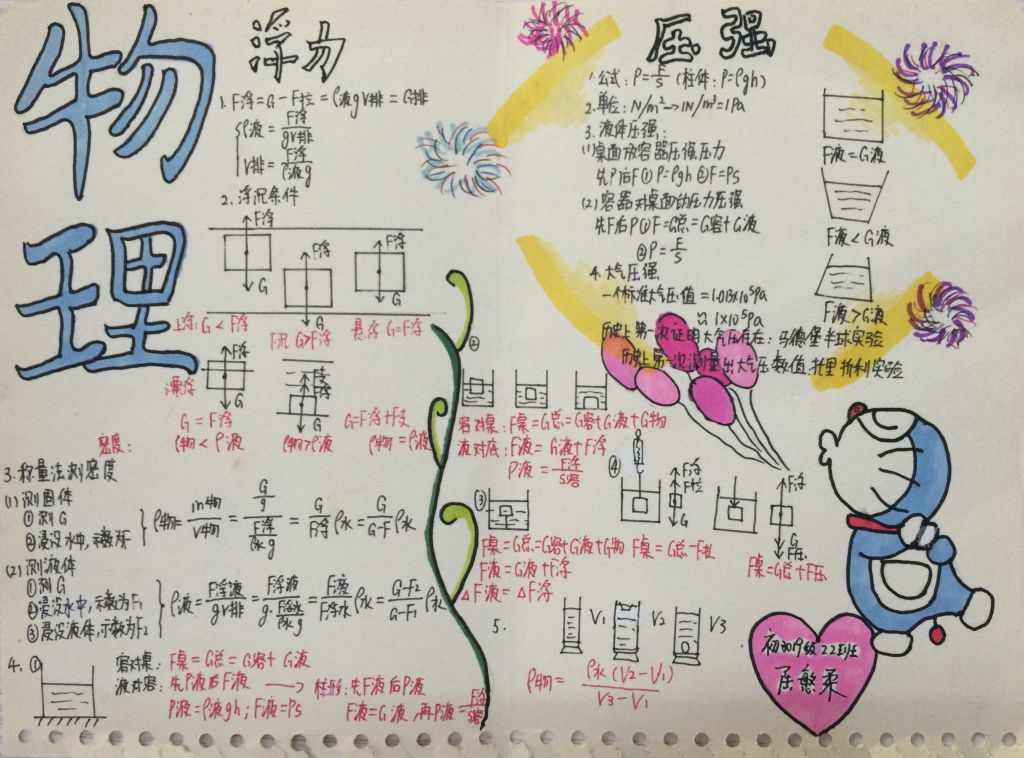 物理
浮力
1. F浮=G-F拉=ρ液gV排=G排
ρ液=F浮/gV排
V排=F浮/ρ液g
2. 浮沉条件
F浮
G
F浮
G
F浮
G
上浮: G<F浮
下沉 G>F浮
悬浮 G=F浮
F浮
G
漂浮
G=F浮
G=F浮+F支
密度:
ρ物<ρ液
ρ物>ρ液
ρ物=ρ液
3. 称量法测密度
(1) 测固体
①测G
②浸没水中,示数为F
ρ物=m物/V物=(G/g)/(F浮/ρ水g)=G/F浮 ρ水=G/(G-F) ρ水
(2) 测液体
①测G
②浸没水中,示数为F1
③浸没液体,示数为F2
ρ液=F浮液/gV排=F浮液/(g·F浮水/ρ水g)=F浮液/F浮水 ρ水=(G-F2)/(G-F1) ρ水
4. ①
容对桌: F桌=G总=G容+G液
液对容: 先P液后F液 → 柱形: 先F液后P液
P液=ρ液gh; F液=PS
F液=G液,再P液=F浮/S容
压强
1. 公式: P=F/S (柱体: P=ρgh)
2. 单位: N/m²→1N/m²=1Pa
3. 液体压强:
(1) 桌面放容器压强压力
先P后F ①P=ρgh ②F=PS
(2) 容器对桌面的压力压强
先F后P ①F=G总=G容+G液
②P=F/S
4. 大气压强
一个标准大气压值=1.013×10⁵Pa
≈1×10⁵Pa
历史上第一次证明大气压存在: 马德堡半球实验
历史上第一次测量出大气压数值: 托里拆利实验
F液=G液
F液<G液
F液>G液
②
容对桌: F桌=G总=G容+G液+G物
液对底: F液=G液+F浮
P液=F浮/S容
③
F桌=G总=G容+G液+G物
F液=G液+F浮
△F液=△F浮
④
F浮
F拉
G
F桌=G总-F拉
F浮
G
F压
F桌=G总+F压
5.
V1
V2
V3
ρ物=ρ水(V2-V1)/(V3-V1)
22班